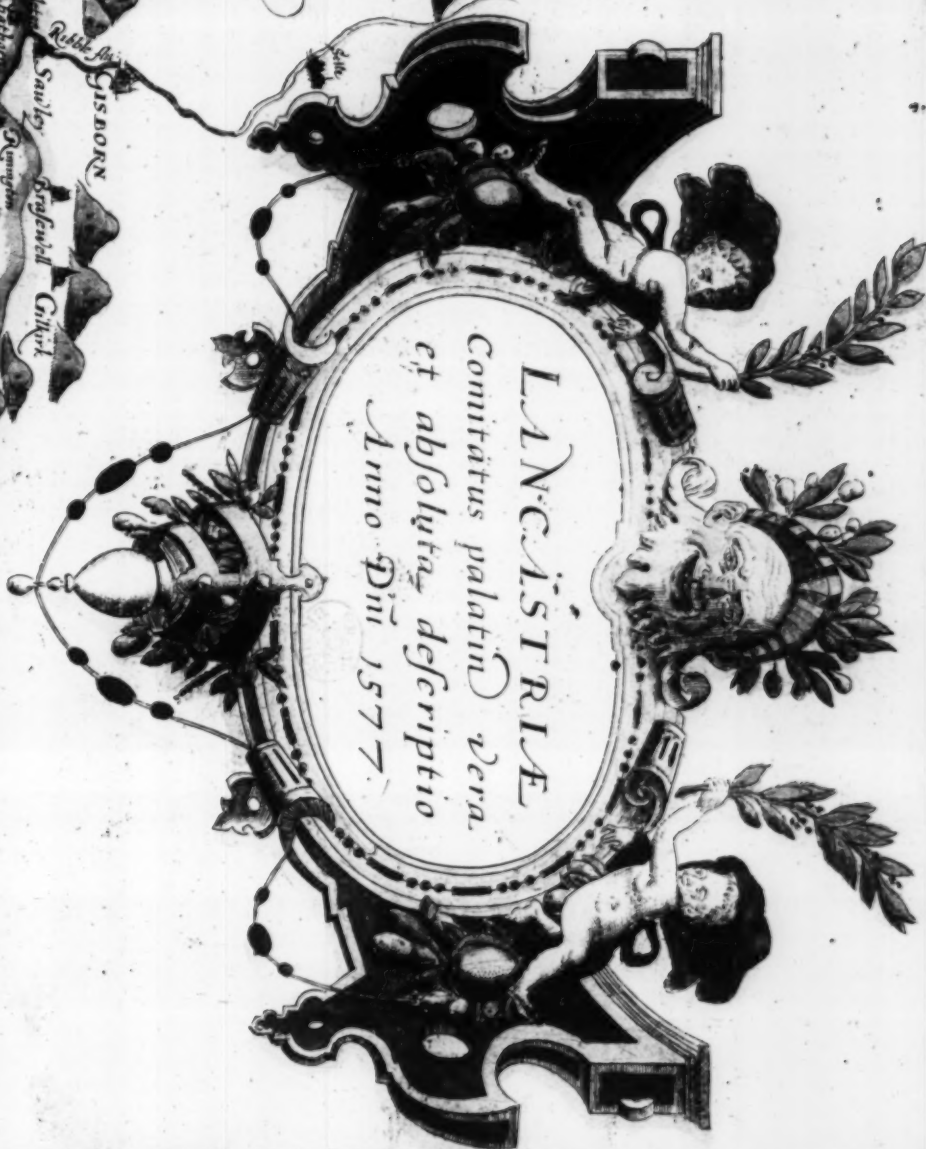 LANCASTRIÆ
Comitatus palatin vera
et absoluta descriptio
Anno Dñi 1577.
Ribble flu:
Sawley
GISBORN
Rimmyngton
Brasewell
Gilkirk